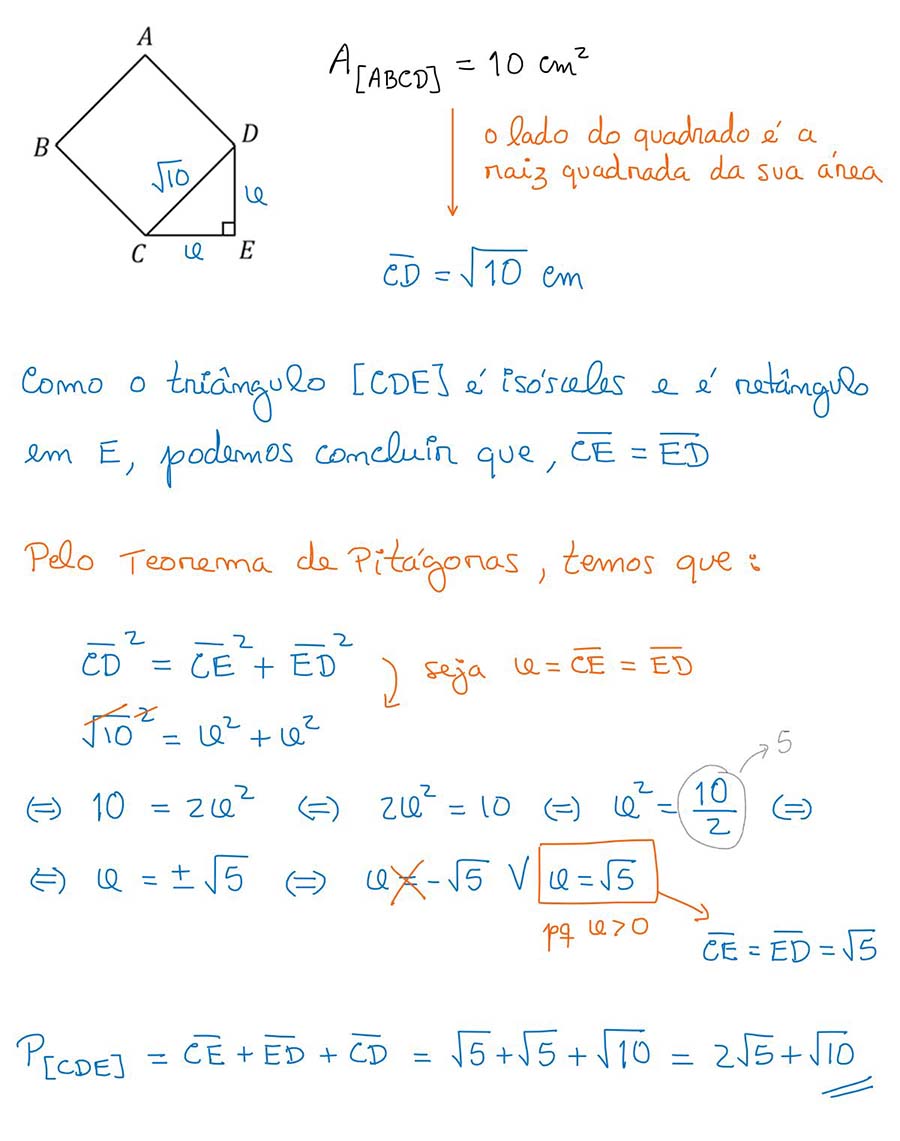 A
B
D
√10
ℓ
C
ℓ
E
A[ABCD] = 10 cm²
o lado do quadrado é a
raiz quadrada da sua área
CD̅ = √10 cm
Como o triângulo [CDE] é isósceles e é retângulo
em E, podemos concluir que, C̅E̅ = E̅D̅
Pelo Teorema de Pitágoras, temos que:
C̅D̅² = C̅E̅² + E̅D̅²
seja ℓ = C̅E̅ = E̅D̅
√10² = ℓ² + ℓ²
5
⇔ 10 = 2ℓ² ⇔ 2ℓ² = 10 ⇔ ℓ² = 10/2 ⇔
⇔ ℓ = ±√5 ⇔ ℓ = -√5 ∨ ℓ = √5
pq ℓ > 0
C̅E̅ = E̅D̅ = √5
P[CDE] = C̅E̅ + E̅D̅ + C̅D̅ = √5 + √5 + √10 = 2√5 + √10